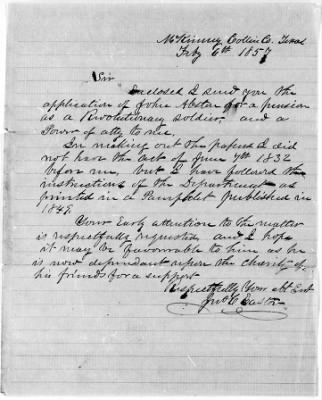 McKinney Collin Co. Texas
Feby 6th 1857
Sir
Enclosed I send you the
application of John Abstar for a pension
as a Revolutionary soldier and a
Power of atty to me.
In making out the papers I did
not have the act of June 7th 1832
before me, but I have followed the
instructions of the Department as
printed in a Pamphlet published in
1849.
Your Early attention to the matter
is respectfully requested and I hope
it may be favourable to him as he
is now dependant upon the charity of
his friends for a support
Respectfully Your obt Svt
Jno C Easton